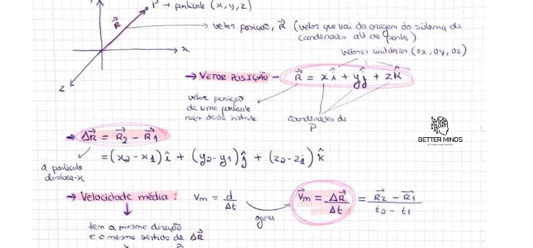 P → partícula (x, y, z)
R⃗
vetor posição, R⃗ (vetor que vai da origem do sistema de
coordenadas até ao ponto)
x
z
vetores unitários (Ox, Oy, Oz)
→ VETOR POSIÇÃO - R⃗ = x î + y ĵ + z k̂
vetor posição
de uma partícula
num dado instante
coordenadas de
P
BETTER MINDS
→ ΔR⃗ = R⃗2 - R⃗1
= (x2 - x1) î + (y2 - y1) ĵ + (z2 - z1) k̂
a partícula
desloca-se
→ Velocidade média: Vm = d/Δt
agora
V⃗m = ΔR⃗/Δt = (R⃗2 - R⃗1)/(t2 - t1)
tem a mesma direção
e o mesmo sentido de ΔR⃗